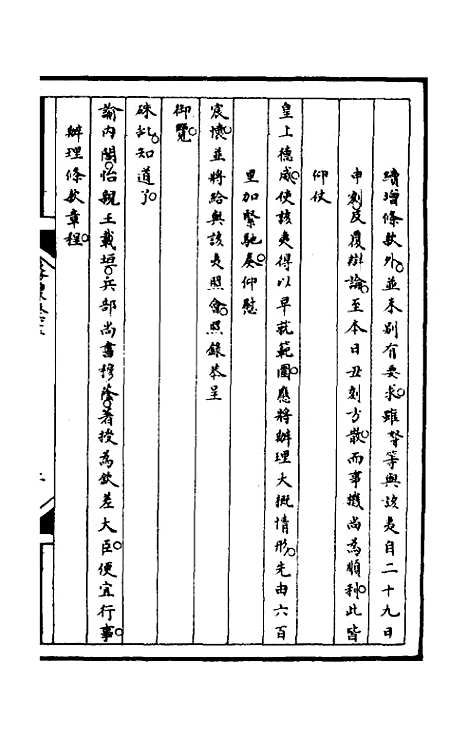 續增條款外。並未別有要求。雖奴才等與該夷自二十九日
申刻反覆辯論。至本日丑刻方散。而事機尚為順利。此皆
仰仗
皇上德威。使該夷得以早就範圍。應將辦理大概情形。先由六百
里加緊馳奏。仰慰
宸懷。並將給與該夷照會。照錄恭呈
御覽。
硃批。知道了。
諭內閣。怡親王載垣。兵部尚書穆蔭。著授為欽差大臣。便宜行事。
辦理條款章程。